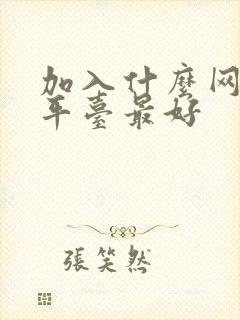 加入什麼网
平臺最好
張笑然